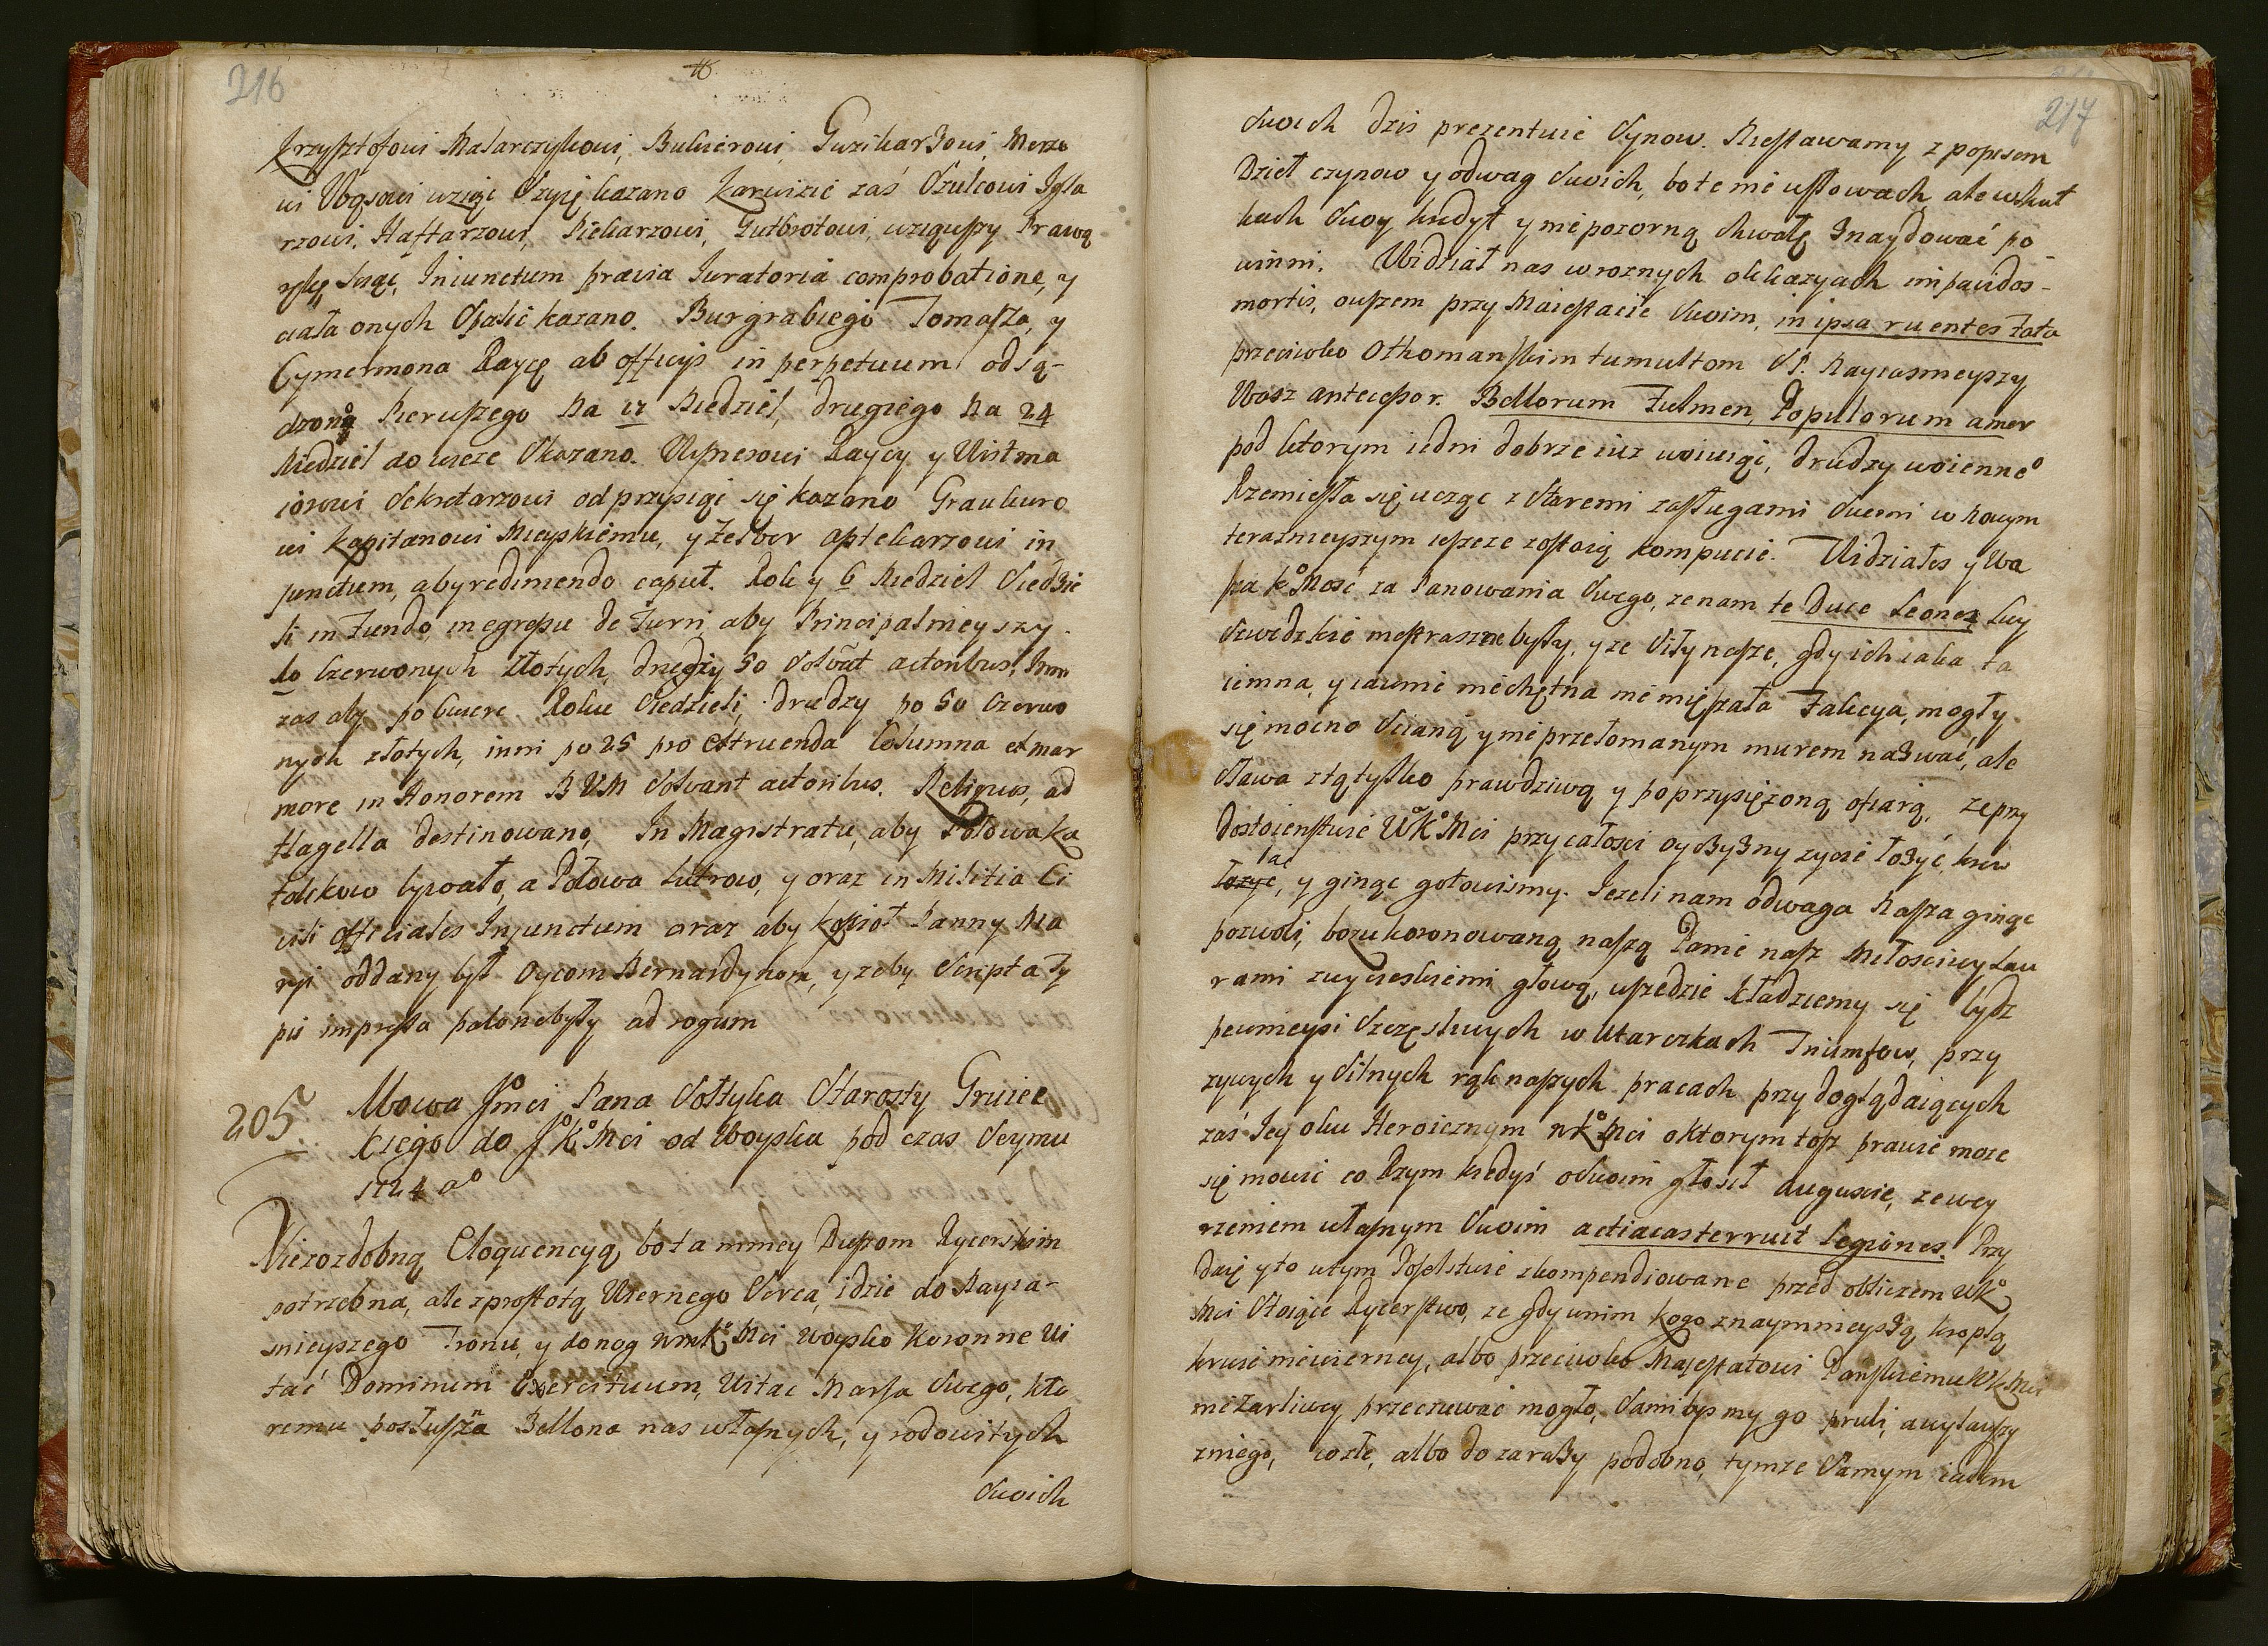 216
Krzysztofowi Malarczykowi, Bulnierowi, Guzikarzowi, Merze
wi Wąsowi wziąć Szyię kazano Karwizie zaś Szulcowi Igla
rzowi, Haftarzowi, Piekarzowi, Gutbrotowi, wziąwszy Prawą
rękę Sciąć, Iniunctum praevia Iuratoria comprobatione, y
ciała onych Spalić kazano. Burgrabiego Tomasza, y
Cymermona Raycę ab officijs in perpetuum odsą-
dzono Pierwszego Na 12 Niedziel, drugiego Na 24
Niedziel do wieze Skazano. Waynerowi Raycy y Witma
ierowi Sekretarzowi odprzysiąi się kazano Grauburo
wi Kapitanowi Mieyskiemu, y Zelber aptekarzowi in
junctum, aby redimendo caput. Rok y 6 Niedziel Siedzie
li in Fundo, in egressu de Turri, aby Principalnieyszy
lo Czerwonych Złotych, drugzy 50 Solvãt actoribus, Inni
zas aby po Cwierc Roku Siedzieli, drudzy po 50 Czerwo
nych złotych, inni po 25 pro exstruenda Columna et mar
more in Honorem B V M Solvant actoribus. Reliquos, ad
flagella destinowano, In Magistratu, aby Połowaka
tolikow bywało, a Połowa Lutrow, y oraz in Militia Ci
vili officiales Injunctum oraz aby koscioł Panny Ma
ryi oddany był Oycom Bernardynom, y zeby Scripta Ty
pis impressa palone były ad rogum
205
Mowa Jmci Pana Sołtyka Starosty Gruiec
kiego do JK Mci od Woyska pod czas Seymu
1724 ao
Niezozdobną Eloquencyą, bo ta mniey Duszom Rycerskim
potrzebna, ale z prostotą Wiernego Serca, idzie do Nayia-
snieyszego Tronu, y do nog WmK Mci Woysko Koronne Wi
tać Dominum Exercituum, Witac Marsa Swego, kto
remu posłuszña Bellona nas własnych, y rodowitych
Swoich
217
Swoich dzis prezentuie Synow. Niestawamy z popisem
Dzieł czynow y odwag Swoich, bo te nie w słowach, ale w skut
kach Swoy kredyt y nie pozorną chwałę znaydować po
winni. Widział nas w roznych okkazyach impavidos-
mortis, owszem przy Maiestacie Swoim, in ipsa ruentes Fata
przeciwko Othomanskim tumultom SP. Nayiasnieyszy
Wasz antecessor. Bellorum Fulmen, Populorum amor
pod ktorym iedni dobrze iuz woiuiąc, drudzy woienneo
Rzemiesła się ucząc z Staremi zasługami Swemi w Nowym
teraznieyszym ieszcze zostaią kompucie. Widziałes y Wa
sza K Mość za Panowania Swego, ze nam te Duce Leones lwy
Szwedzkie niestraszne były, y ze Siły nasze, gdy ich iaka ta
iemna, y iawnie niechętna nie mięszała Fakcya, mogły
się mocno Scianą, y nie przełomanym murem nazwać, ale
Sława z tą tylko prawdziwą y poprzysięzoną ofiarą, ze przy
Dostoienstwie WK Mci przy całosci oyczyzny zycie łozyć, krew
lac
łozyc, y ginąc gotowismy. Iezeli nam odwaga Nasza ginąc
pozwoli, bo z ukoronowaną naszą Panie nasz Miłosciwy Lau
rami zwycieskiemi głową, wszędzie kładziemy się bydz
pewnieysi Szczęsliwych w Utarczkach Triumfow, przy
zywych y Silnych rąk naszych pracach przy doglądaiących
zaś Iey oku Heroicznym WK Mci o ktorym tosz prawie moze
się mowic co Rzym kiedyś o Swoim głosił Auguscie, ze wey
rzeniem własnym Swoim actiacas terruit Legiones. Przy
daię y to w tym Poselstwie skompendiowane przed obliczem WK
Mci Stoiące Rycerstwo, ze gdy w nim kogo znaymnieyszą kroplą
krwie niewierney, albo przeciwko Majestatowi Panskiemu WK Mci
nieżarliwey przeczuwać mogło, Sami bysmy go pruli, a wylawszy
z niego, co złe, albo do zarazy podobno, tymze Samym iadem